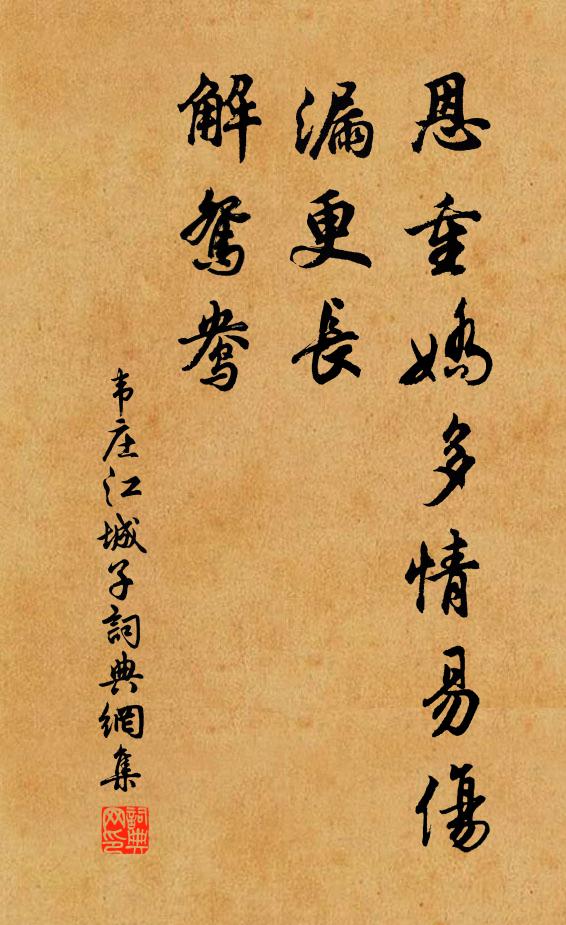 恩重嬌多情易傷
漏更長
解鴛鴦
韦庄江城子詞典網集
詞典网印